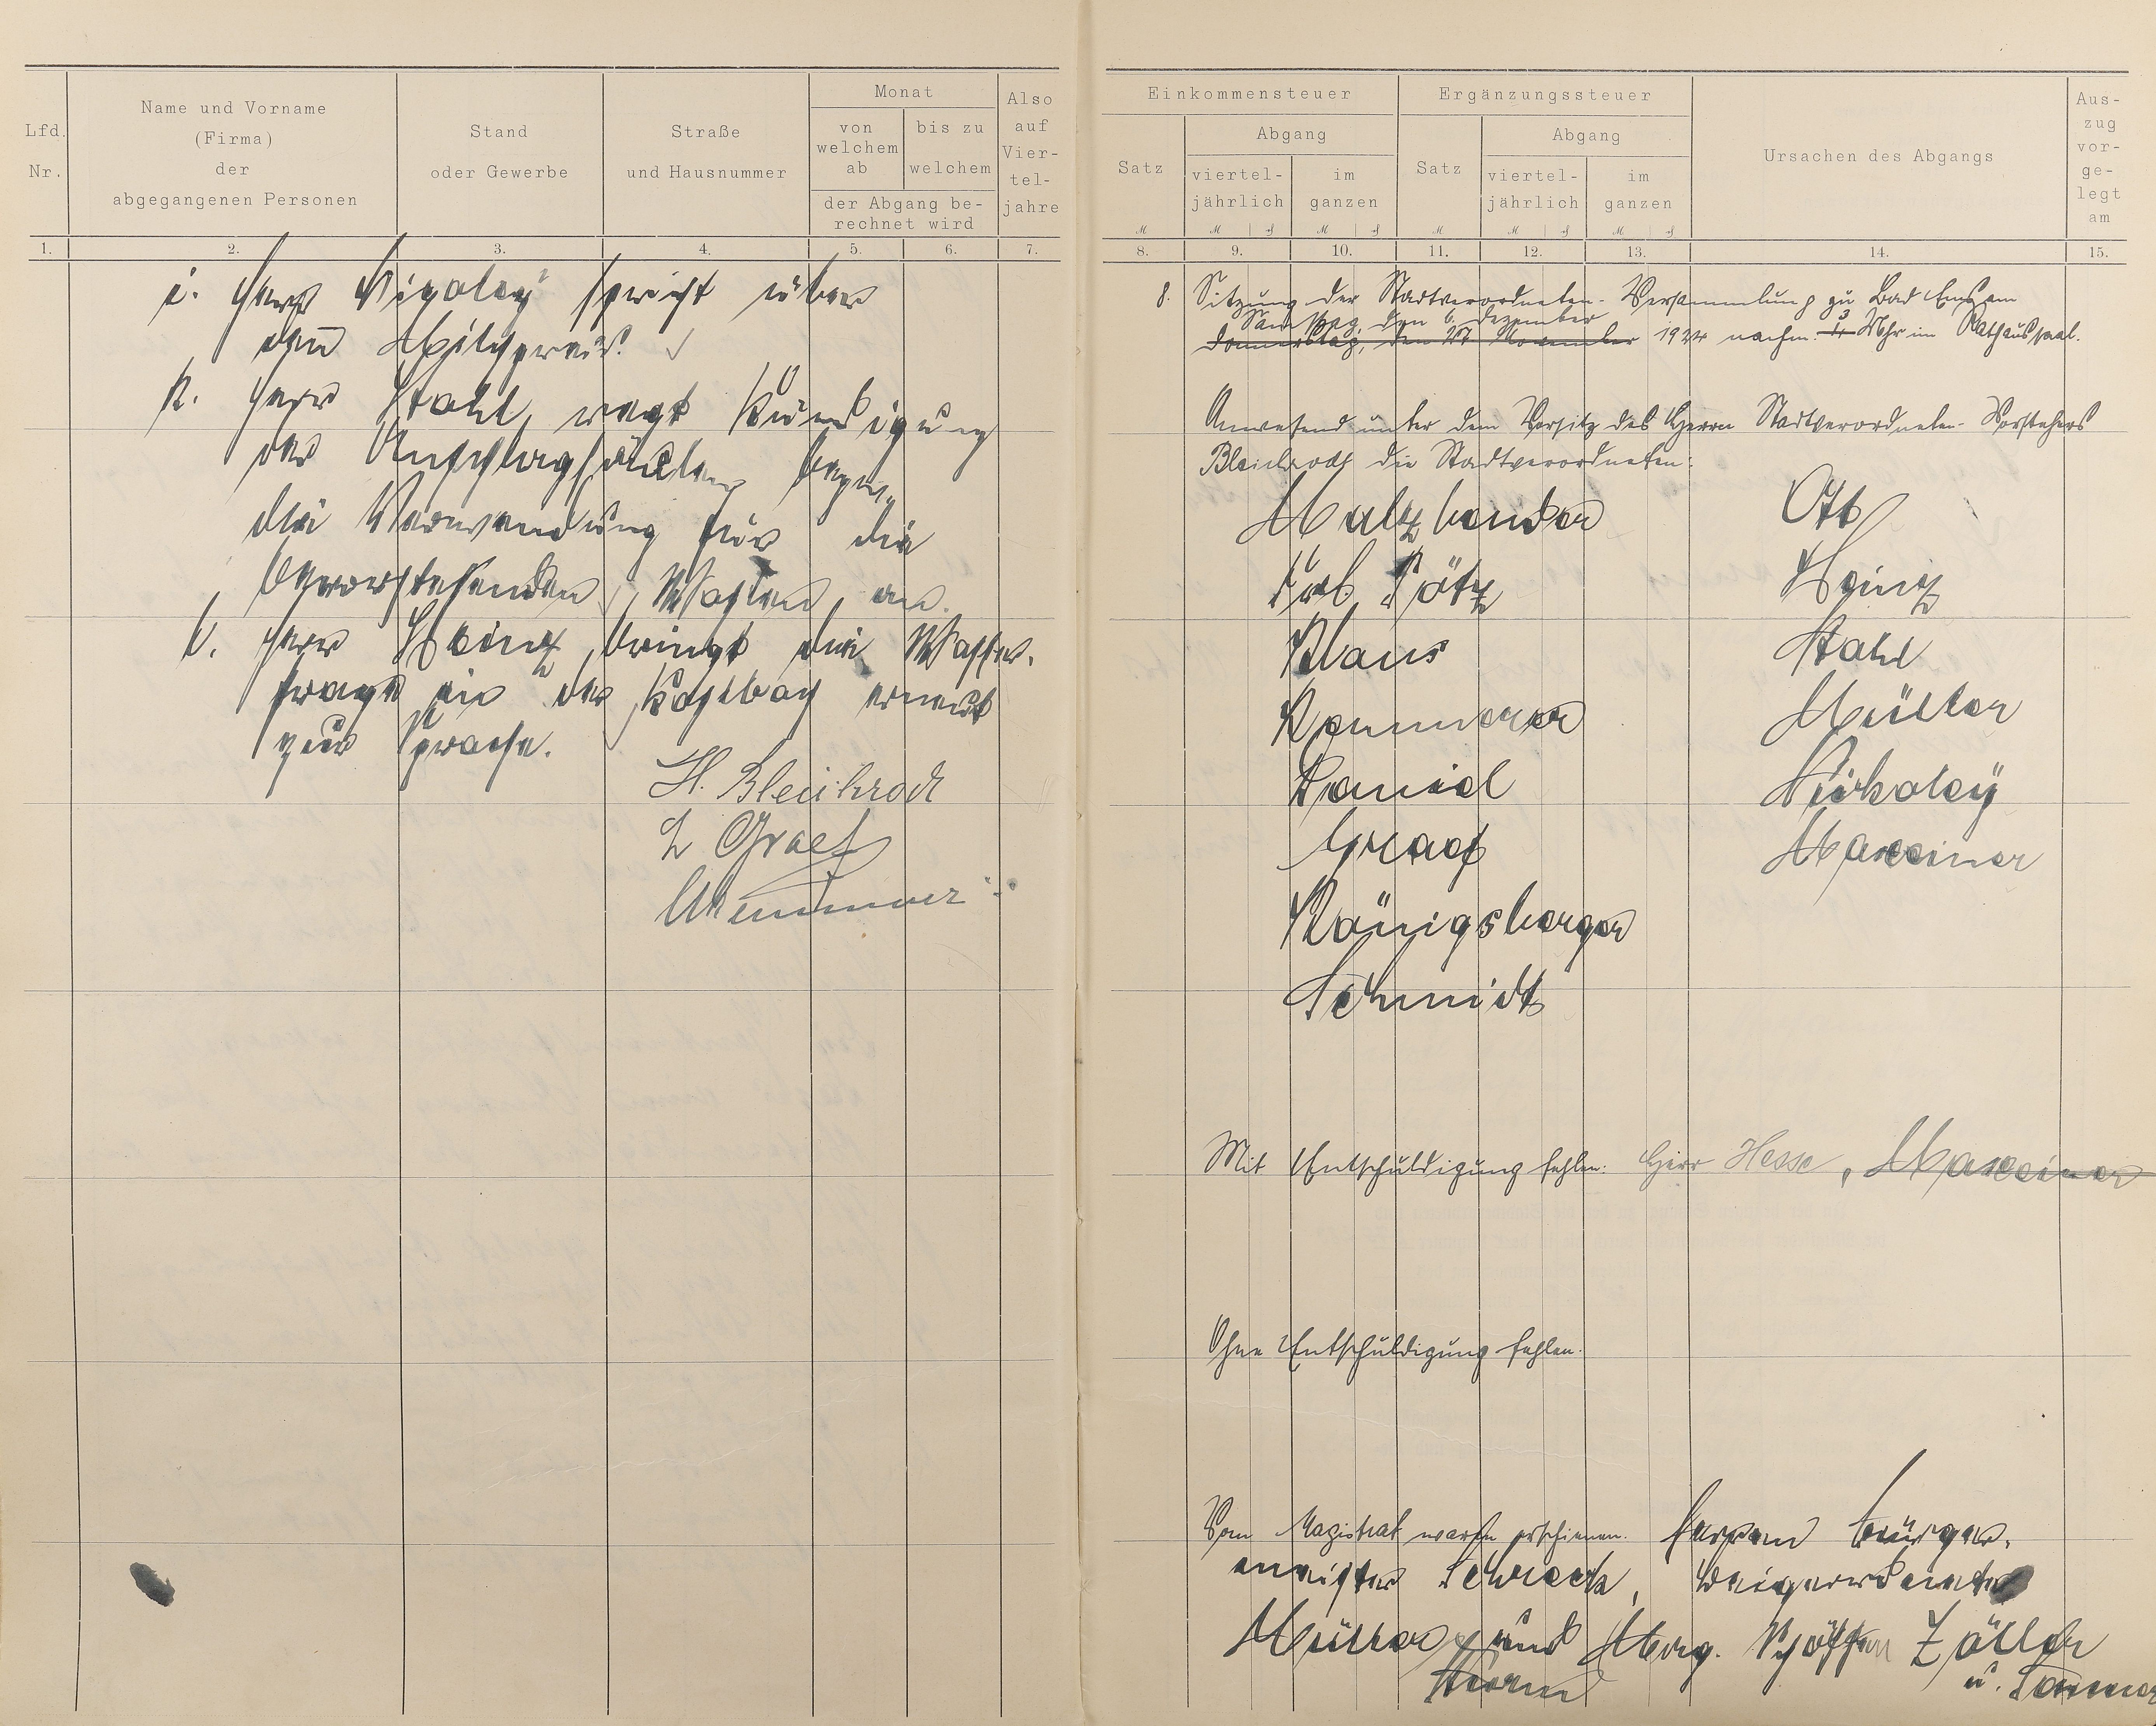 Lfd. Nr.
Name und Vorname
(Firma)
der
abgegangenen Personen
Stand
oder Gewerbe
Straße
und Hausnummer
Monat
von welchem ab
bis zu welchem
der Abgang be-
rechnet wird
Also
auf
Vier-
tel-
jahre
1. 2. 3. 4. 5. 6. 7.
i. Herr Nikolay spricht über
den Milchpreis.
k. Herr Stahl regt Kündigung
der Anschlagsäulen bezw.
die Verwendung für die
bevorstehenden Wahlen an.
l. Herr Heinz bringt die Wasser-
frage in der Kohlbach erneut
zur Sprache.
H. Bleibrodt
L Graef
Einkommensteuer
Satz
Abgang
viertel-
jährlich
im
ganzen
Ergänzungssteuer
Satz
Abgang
viertel-
jährlich
im
ganzen
Ursachen des Abgangs
Aus-
zug
vor-
ge-
legt
am
M M ₰ M ₰ M M ₰ M ₰
8. 9. 10. 11. 12. 13. 14. 15.
8. Sitzung der Stadtverordneten-Versammlung zu Bad Ems am
Samstag, den 6. Dezember
Donnerstag, den 27. November 1924 nachm. 4 3 Uhr im Rathaussaal.
Anwesend unter dem Vorsitz des Herrn Stadtverordneten-Vorstehers
Bleibrodt die Stadtverordneten:
Malzbender Ott
Heinz
Klaus Stahl
Kemmerer Müller
Daniel Nikolay
Graef Maxeiner
Königsberger
Schmidt
Mit Entschuldigung fehlen: Herr Hesse, Maxeiner
Ohne Entschuldigung fehlen.
Vom Magistrat waren erschienen. Herren Bürger-
meister Schreck, Beigeordneter
Müller und Mag. Schöffen Zöller
u.